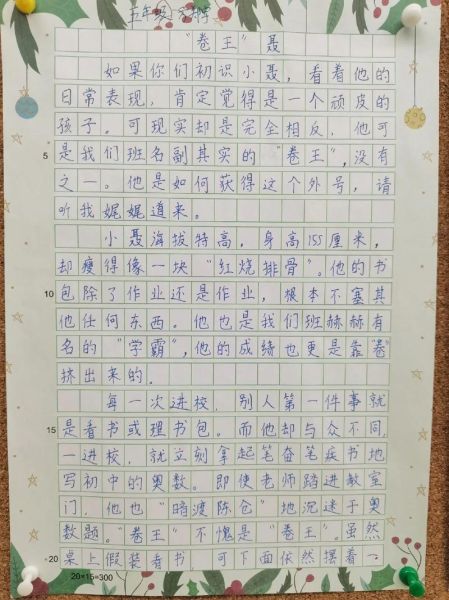 五年级
“卷王”聂
如果你们初识小聂，看着他的
日常表现，肯定觉得是一个顽皮的
孩子。可现实却是完全相反，他可
5 是我们班名副其实的“卷王”，没有
之一。他是如何获得这个外号，请
听我娓娓道来。
小聂海拔特高，身高155厘米，
却瘦得像一块“红烧排骨”。他的书
10 包除了作业还是作业，根本不塞其
他任何东西。他也是我们班赫赫有
名的“学霸”，他的成绩也更是靠“卷”
挤出来的。
每一次进校，别人第一件事就
15 是看书或理书包。而他却与众不同，
一进校，就立刻拿起笔奋笔疾书地
写初中的奥数。即使老师踏进教室
门，他也“暗渡陈仓”地沉迷于奥
数题。“卷王”不愧是“卷王”。虽然
20 桌上假装看书，可下面依然摆着一
20×15=300